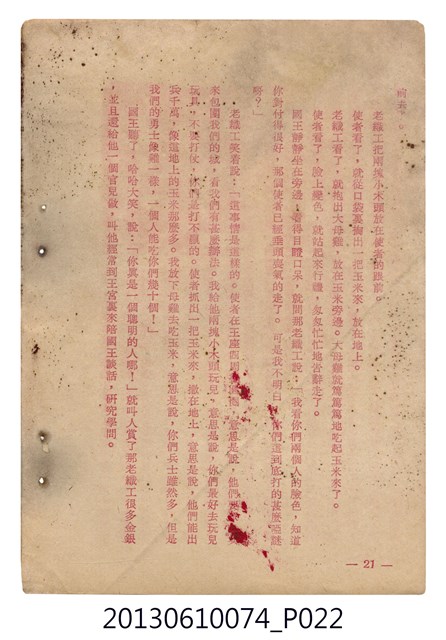 老織工把兩塊小木頭放在使者的跟前。
使者看了,就從口袋裏掏出一把玉米來,放在地上。
老織工看了,就抱出大母雞,放在玉米旁邊。大母雞就篤篤篤地吃起玉米來了。
使者看了,臉上變色,就站起來行禮,匆匆忙忙地告辭走了。
國王靜靜坐在旁邊,看得目瞪口呆,就問那老織工說:「我看你們兩個人的臉色,知道
你對付得很好,那個使者已經垂頭喪氣的走了。可是我不明白,你們這到底打的甚麼啞謎
呀?」
老織工笑着說:「這事情是這樣的。使者在王座四周 意思是說,他們
來包圍我們的城,看我們有甚麼辦法。我給他兩塊小木頭玩兒,意思是說,你們最好去玩兒
玩具,不要打仗,你們是打不贏的。使者抓出一把玉米來,撒在地上,意思是說,他們能出
兵千萬,像這地上的玉米那麼多。我放下母雞去吃玉米,意思是說,你們兵士雖然多,但是
我們的勇士像雞一樣,一個人能吃你們幾十個!」
國王聽了,哈哈大笑,說:「你眞是一個聰明的人哪!」就叫人賞了那老織工很多金銀
,並且還給他一個官兒做,叫他經常到王宮裏來陪國王談話,研究學問。
— 21 —
20130610074_P022